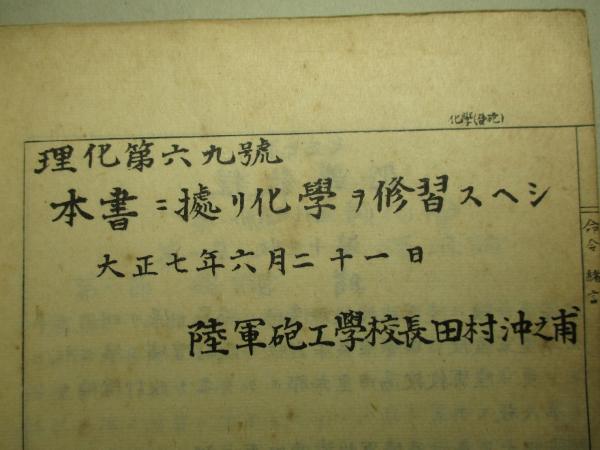 化學(普砲)
理化第六九號
本書ニ據リ化學ヲ修習スヘシ
大正七年六月二十一日
陸軍砲工學校長田村沖之甫
命令 緒言